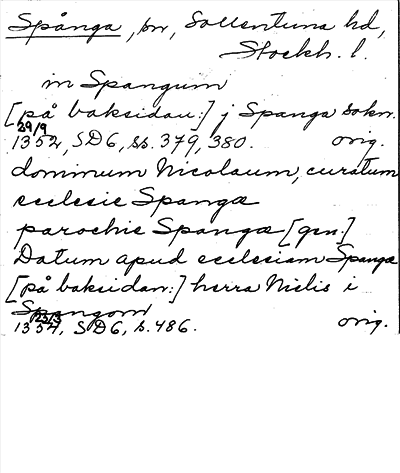 Spånga, sn, Sollentuna hd,
Stockh. l.
in Spangum
[på baksidan:] j Spanga sokn.
29/9
1352, SD6, ss. 379, 380. orig.
dominum Nicolaum, curatum
ecclesie Spangæ
parochie Spangæ [gen:]
Datum apud ecclesiam Spangæ
[på baksidan:] herra Nielis i
Spangom
23/3
1354, SD6, s. 486. orig.